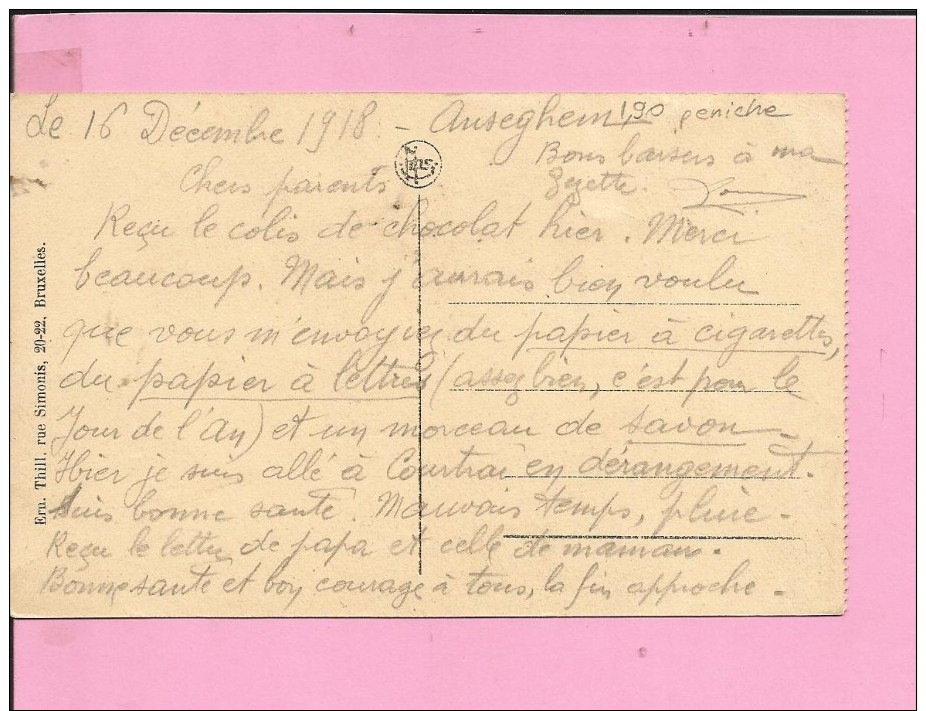 Le 16 Décembre 1918 - Anseghem 1,90 peniche
Bons baisers à ma
Gezette.
Chers parents
Reçu le colis de chocolat hier. Merci
beaucoup. Mais j'aurais bien voulu
que vous m'envoyiez du papier à cigarettes,
du papier à lettres (assez bien, c'est pour le
Jour de l'An) et un morceau de savon -,
Hier je suis allé à Courtrai en dérangement.
Suis bonne santé. Mauvais temps, pluie -
Reçu le lettre de papa et celle de maman.
Bonne santé et bon courage à tous, la fin approche -
Ern. Thill, rue Simonis, 20-22, Bruxelles.